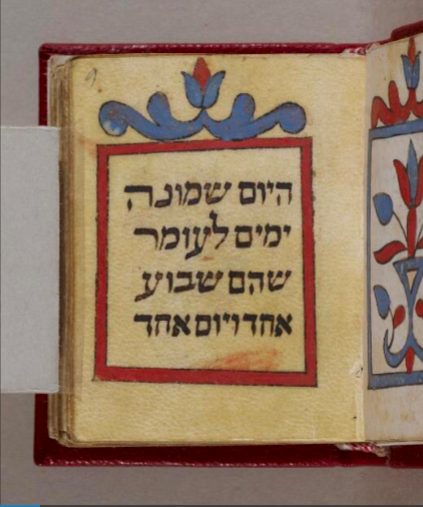 היום שמונה
ימים לעומר
שהם שבוע
אחד ויום אחד